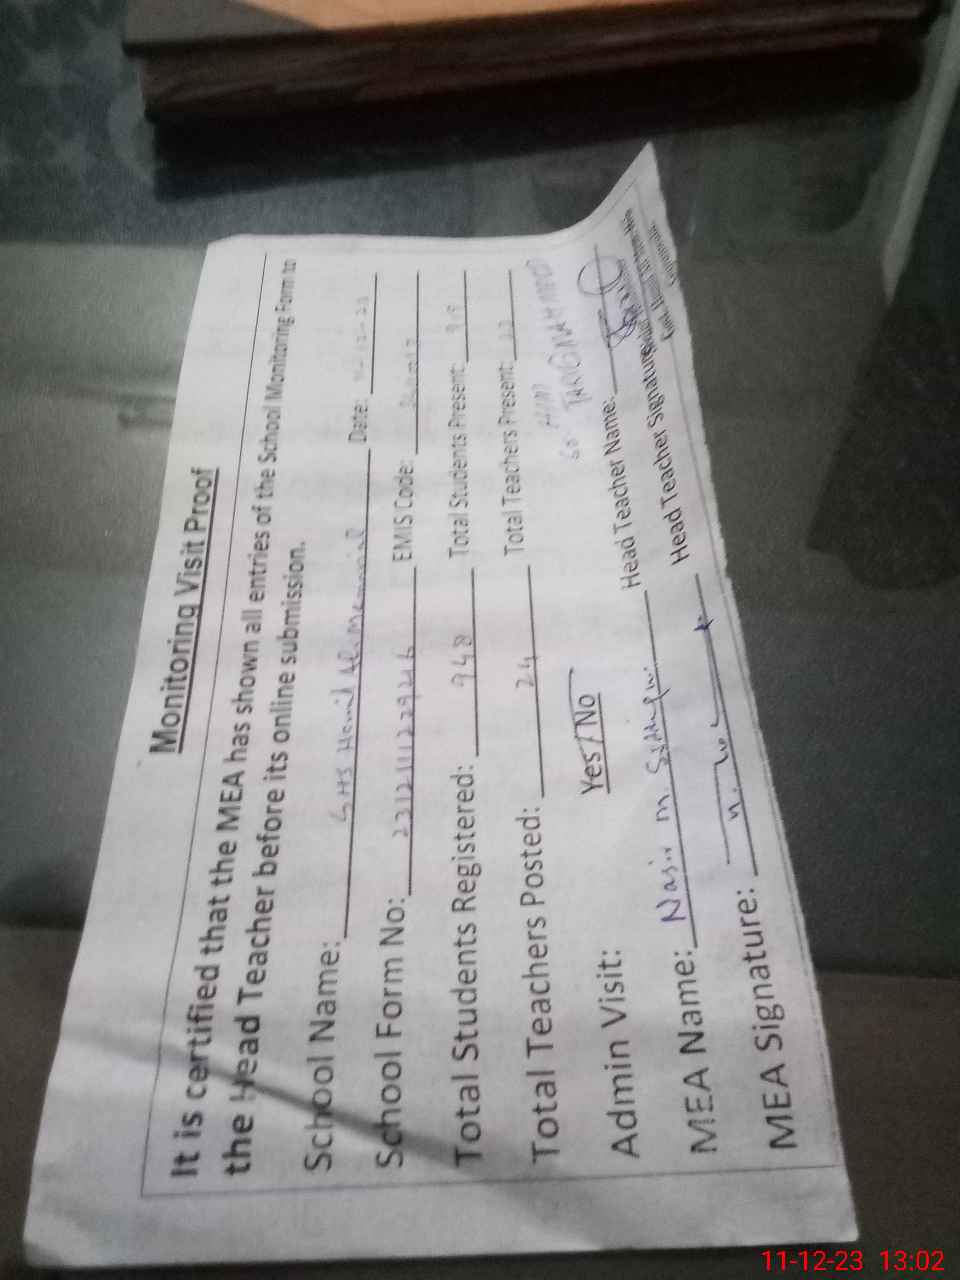 Monitoring Visit Proof
It is certified that the MEA has shown all entries of the School Monitoring Form to
the Head Teacher before its online submission.
School Name: GHS Hamid Ali Memorial Date:
School Form No: EMIS Code:
Total Students Registered: 948 Total Students Present: 919
Total Teachers Posted: 24 Total Teachers Present:
Admin Visit: Yes / No Head Teacher Name:
MEA Name: Nasir M. Head Teacher Signature:
MEA Signature:
11-12-23 13:02